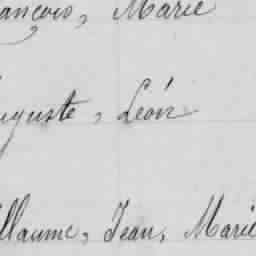 ançois, Marie
uguste, Léon
illaume, Jean, Marie